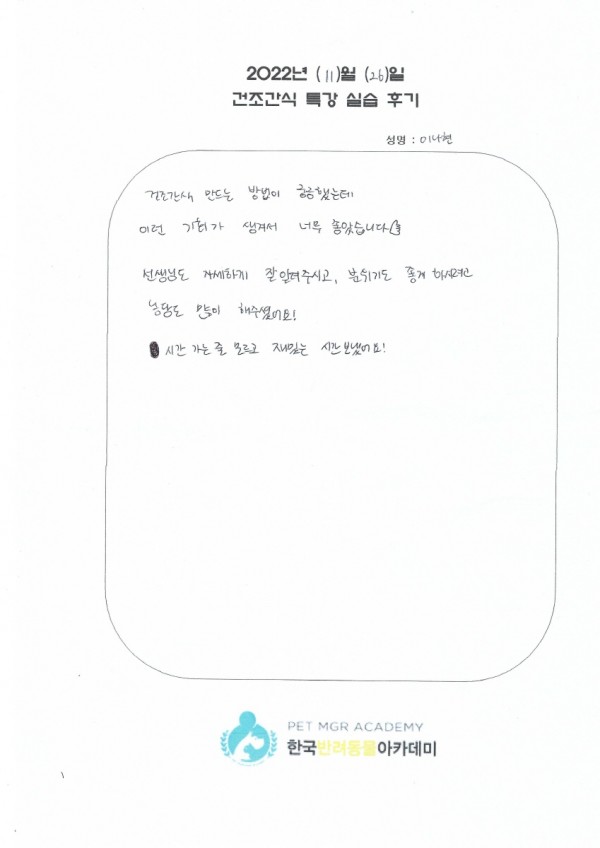 2022년 (11)월 (26)일
건조간식 특강 실습 후기
성명 : 이나현
건조간식 만드는 방법이 궁금했는데
이런 기회가 생겨서 너무 좋았습니다
선생님도 자세하게 잘 알려주시고, 분위기도 좋게 하시려고
농담도 많이 해주셨어요!
시간 가는 줄 모르고 재밌는 시간 보냈어요!
PET MGR ACADEMY
한국반려동물아카데미